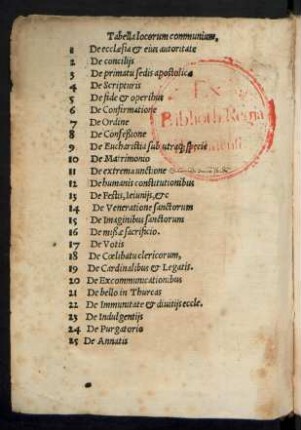 Tabella locorum communium.
1 De ecclesia & eius autoritate
2 De concilijs
3 De primatu sedis apostolicæ
4 De Scripturis
5 De fide & operibus
6 De Confirmatione
7 De Ordine
8 De Confeßione
9 De Eucharistia sub utraq; specie
10 De Matrimonio
11 De extrema unctione
12 De humanis constitutionibus
13 De Festis, Ieiunijs, &c
14 De Veneratione sanctorum
15 De Imaginibus sanctorum
16 De mißæ sacrificio.
17 De Votis
18 De Cœlibatu clericorum,
19 De Cardinalibus & Legatis.
20 De Excommunicationibus
21 De bello in Thurcas
22 De Immunitate & diuitijs eccle.
23 De Indulgentijs
24 De Purgatorio
25 De Annatis
Ex
Biblioth. Regia